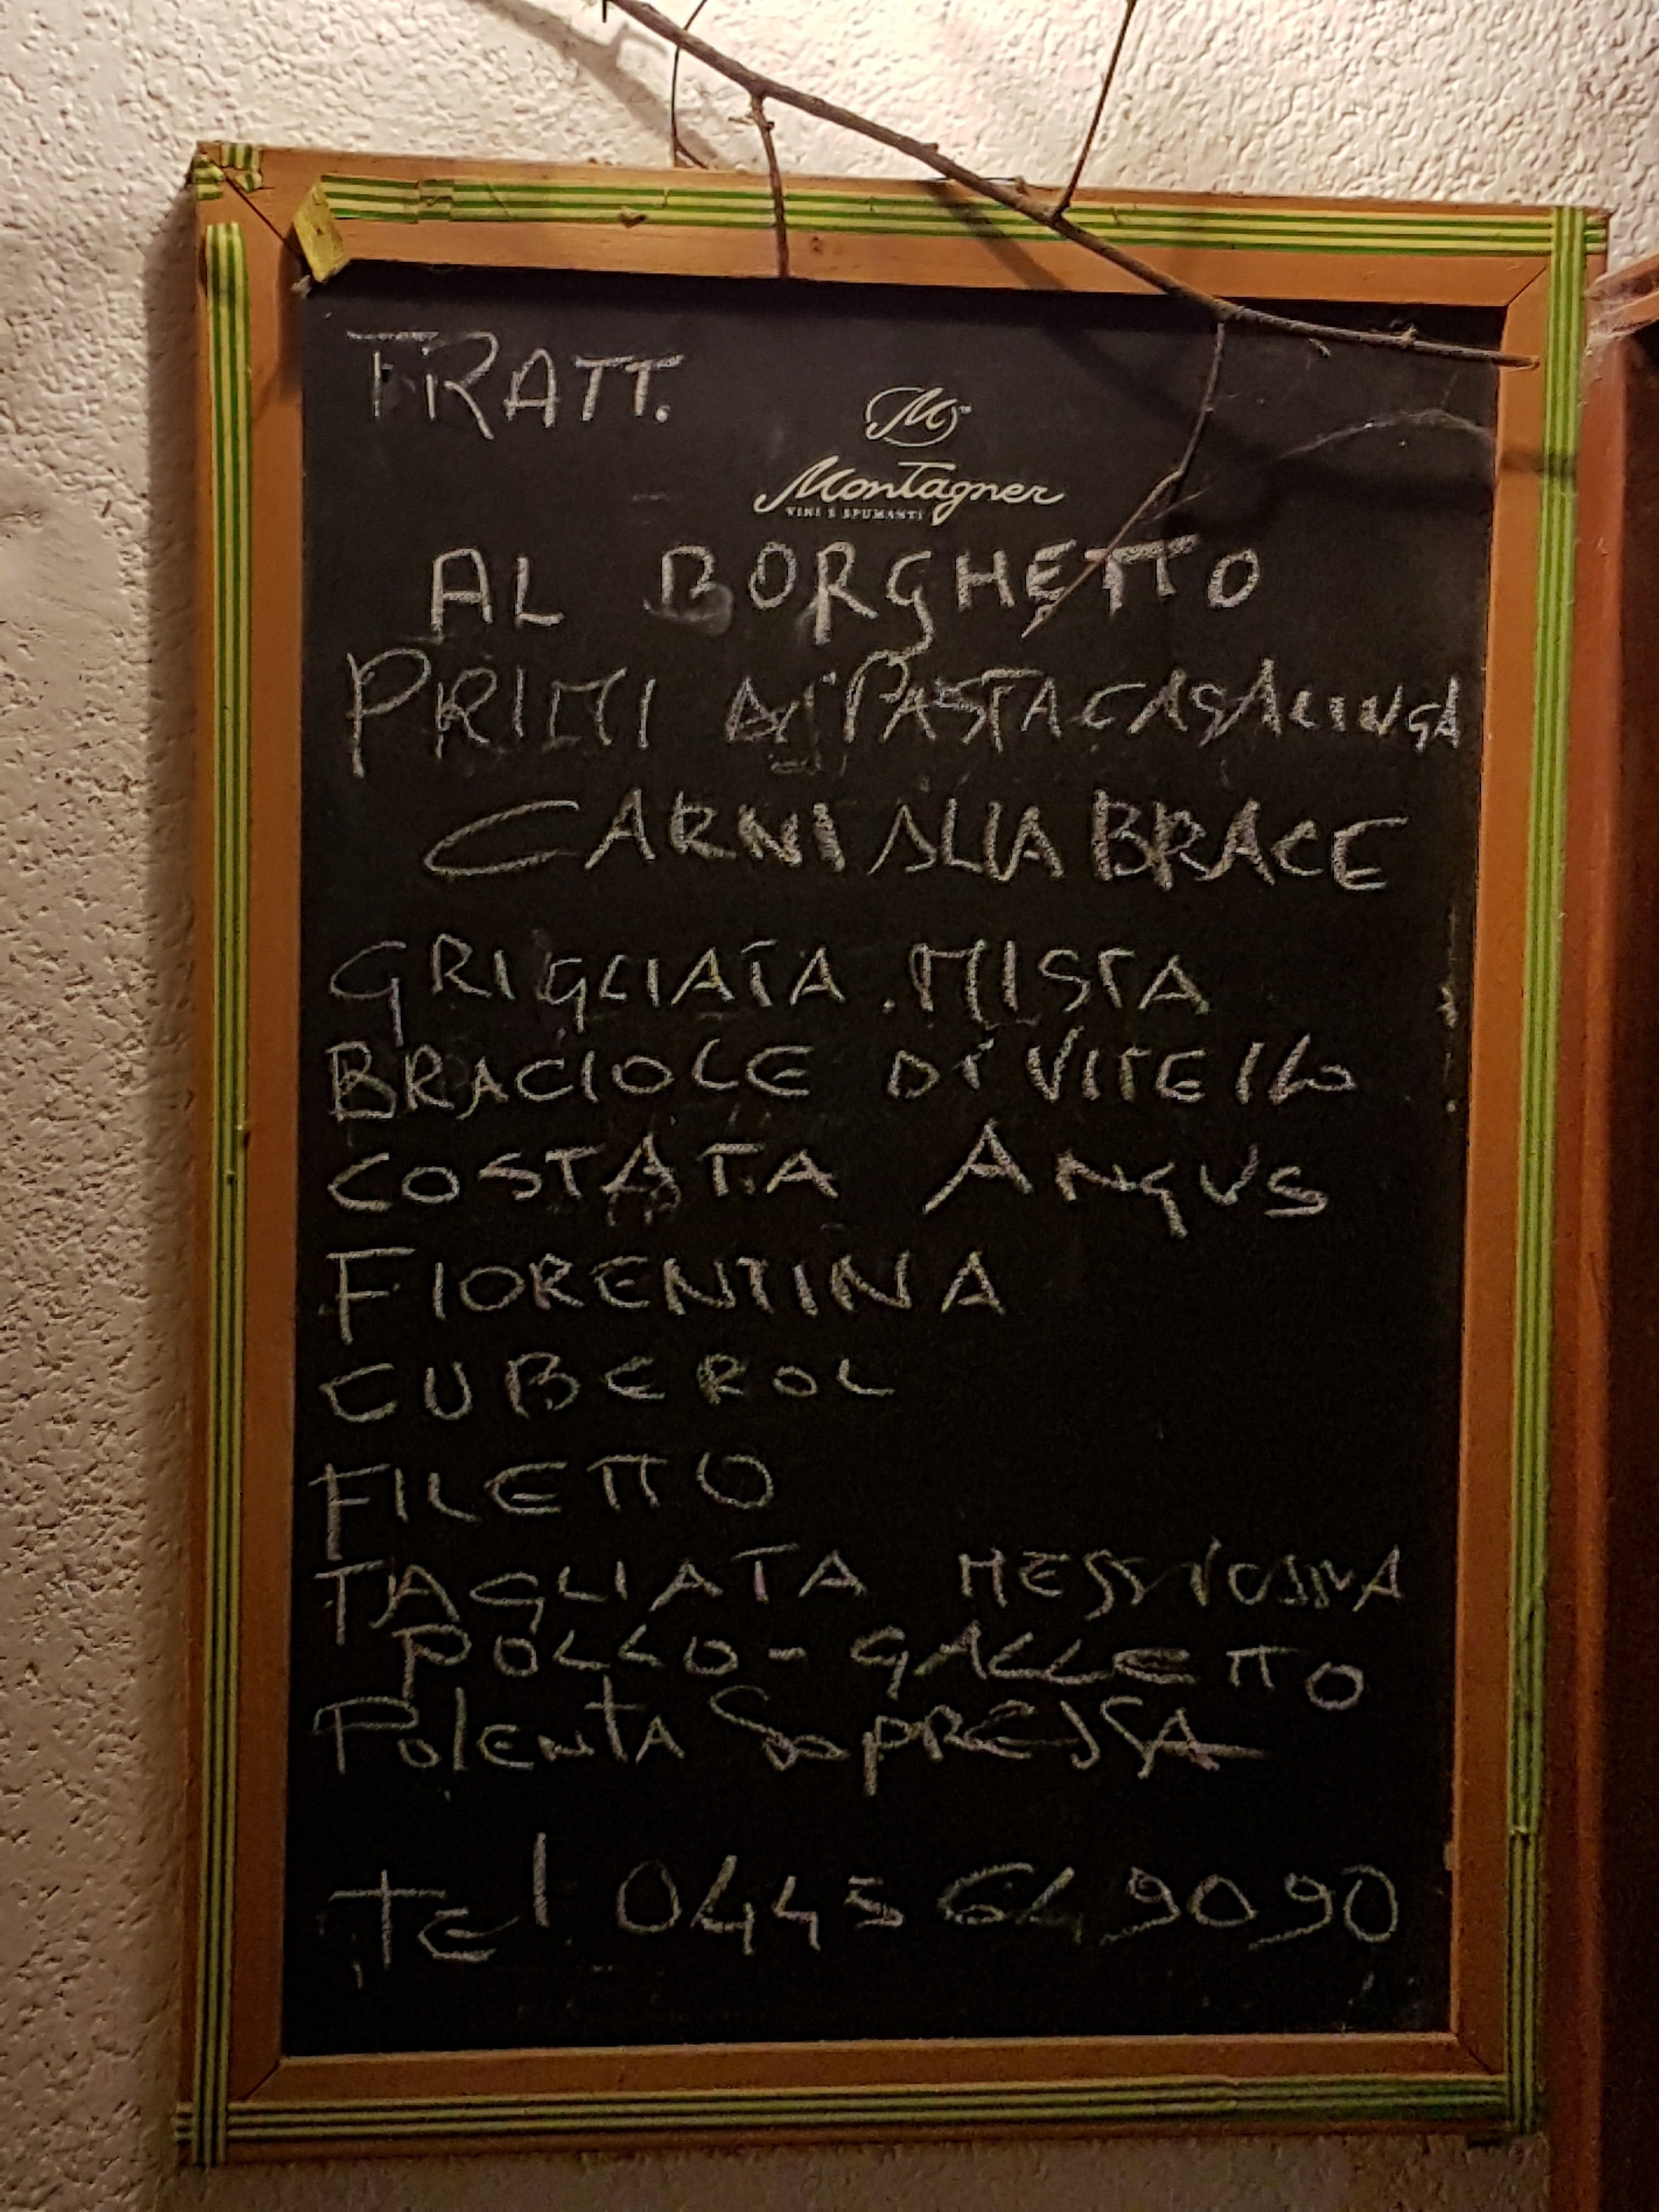 TRATT.
M
Montagner
VINI E SPUMANTI
AL BORGHETTO
PRIMI di PASTA CASALINGA
CARNI ALLA BRACE
GRIGLIATA MISTA
BRACIOLE Di VITELLO
COSTATA ANGUS
FIORENTINA
CUBEROL
FILETTO
TAGLIATA MESSICANA
POLLO - GALLETTO
PolentA SopRESSA
Tel 0445 649090